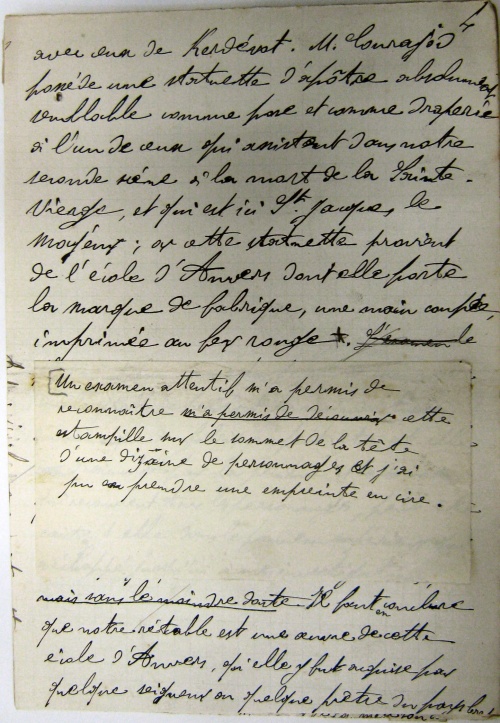 4
avec ceux de Kerdévot. M. Courajod
possède une statuette d'apôtre absolument
semblable comme pose et comme draperie
à l'un de ceux qui assistent dans notre
seconde scène à la mort de la Sainte-
Vierge, et qui est ici St. Jacques le
Majeur ; or cette statuette provient
de l'école d'Anvers dont elle porte
la marque de fabrique, une main coupée,
imprimée au fer rouge +. L'examen le
[Un examen attentif m'a permis de
reconnaître m'a permis de découvrir cette
estampille sur le sommet de la tête
d'une dizaine de personnages et j'ai
pu en prendre une empreinte en cire.
mais sans le moindre doute. Il faut en conclure
que notre rétable est une œuvre de cette
école d'Anvers, qu'elle y fut acquise par
quelque seigneur ou quelque prêtre du pays